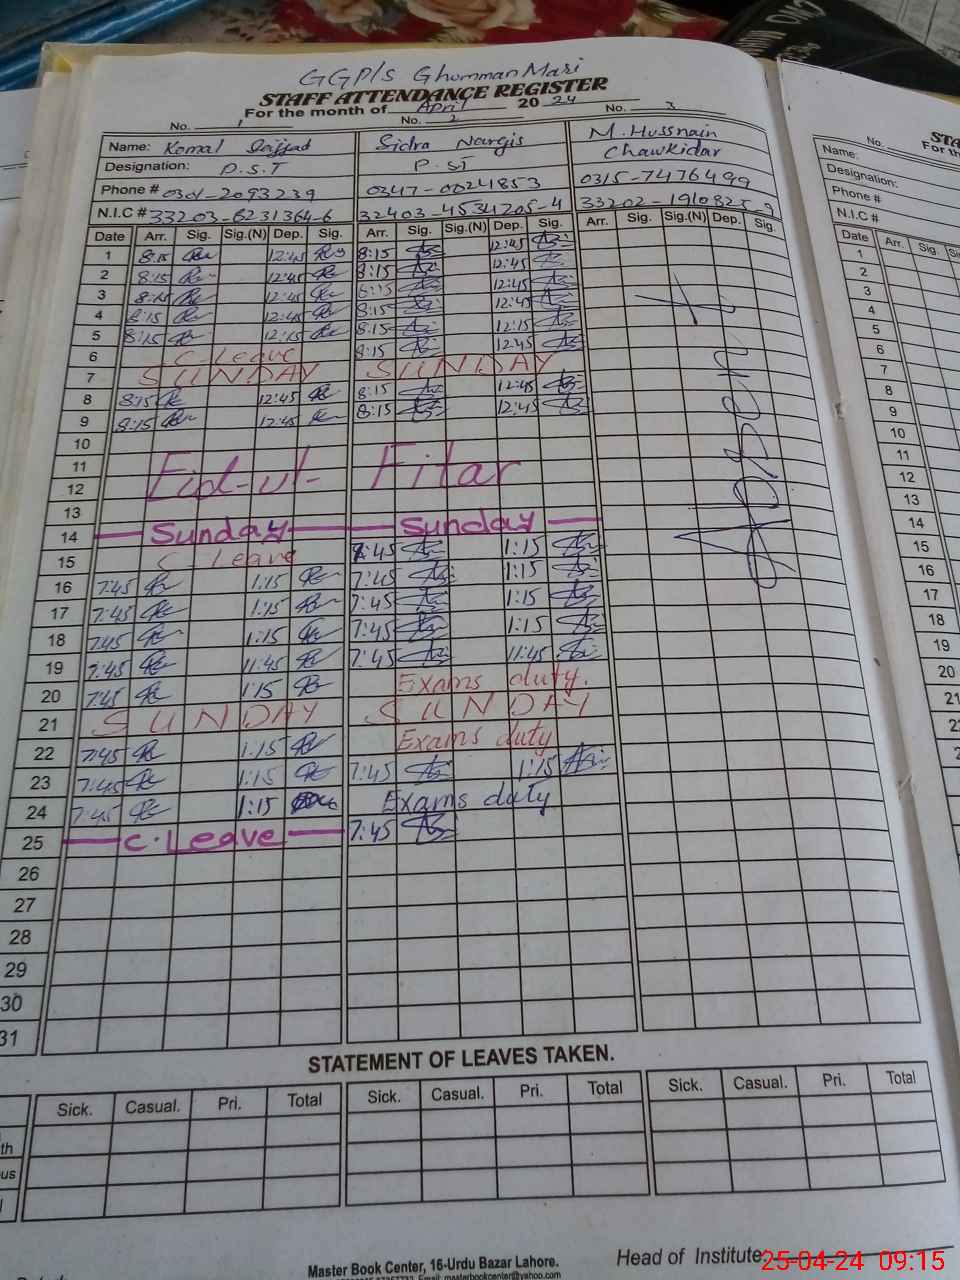 GGP/S Ghumman Mari
STAFF ATTENDANCE REGISTER
For the month of April 2024
No. 1 No. 2 No. 3
Name: Komal Sajjad Sidra Nargis M. Hussnain
Designation: P.S.T P.ST Chawkidar
Phone # 0301-2093239 0347-0024853 0315-7476499
N.I.C # 33203-6231364-6 32403-4534205-4 33202-1910825
Date Arr. Sig. Sig.(N) Dep. Sig. Arr. Sig. Sig.(N) Dep. Sig. Arr. Sig. Sig.(N) Dep. Sig.
1 8:15 12:45 8:15 12:45
2 8:15 12:45 8:15 12:45
3 8:15 12:45 8:15 12:45
4 8:15 12:45 8:15 12:45
5 8:15 12:15 8:15 12:15
6 C-Leave 8:15 12:45
7 SUNDAY SUNDAY
8 8:15 12:45 8:15 12:45
9 8:15 12:45 8:15 12:45
10
11 Eid-ul- Fitar
12
13
14 Sunday Sunday
15 C-Leave 7:45 1:15
16 7:45 1:15 7:45 1:15
17 7:45 1:15 7:45 1:15
18 7:45 1:15 7:45 1:15
19 7:45 11:45 7:45 11:45
20 7:45 1:15 Exams duty.
21 SUNDAY SUNDAY
22 7:45 1:15 Exams duty
23 7:45 1:15 7:45 1:15
24 7:45 1:15 Exams duty
25 C.Leave 7:45
26
27
28
29
30
31
STATEMENT OF LEAVES TAKEN.
Sick. Casual. Pri. Total Sick. Casual. Pri. Total Sick. Casual. Pri. Total
th
us
Master Book Center, 16-Urdu Bazar Lahore.
Email: masterbookcenter@yahoo.com
Head of Institute:
No.
Name:
Designation:
Phone #
N.I.C #
Date Arr. Sig.
1
2
3
4
5
6
7
8
9
10
11
12
13
14
15
16
17
18
19
20
21
25-04-24 09:15